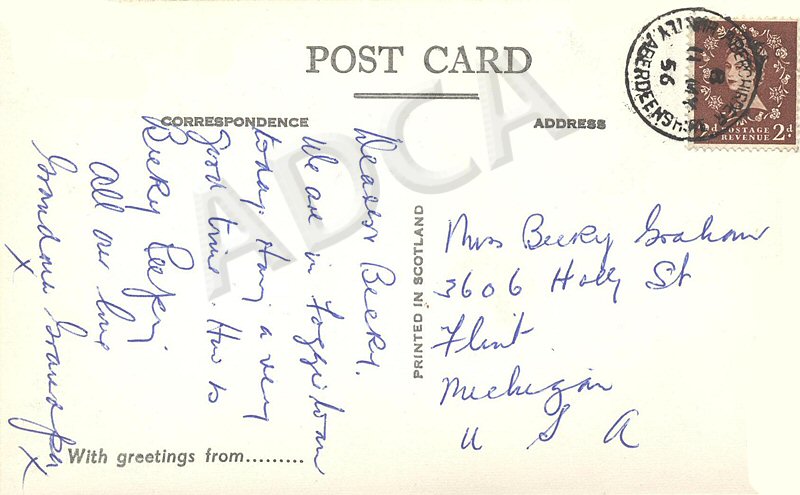 POST CARD
CORRESPONDENCE
ADDRESS
Dearest Becky.
We are in Foggieloan
today. Having a very
good time. How is
Becky keeping.
All our love
Grandma Grandpa
X X
Miss Becky Graham
3606 Holly St
Flint.
Michigan
U S A
PRINTED IN SCOTLAND
With greetings from.........
ABERCHIRDER
HUNTLY, ABERDEENSHIRE
56
POSTAGE
REVENUE
2d
ADCA